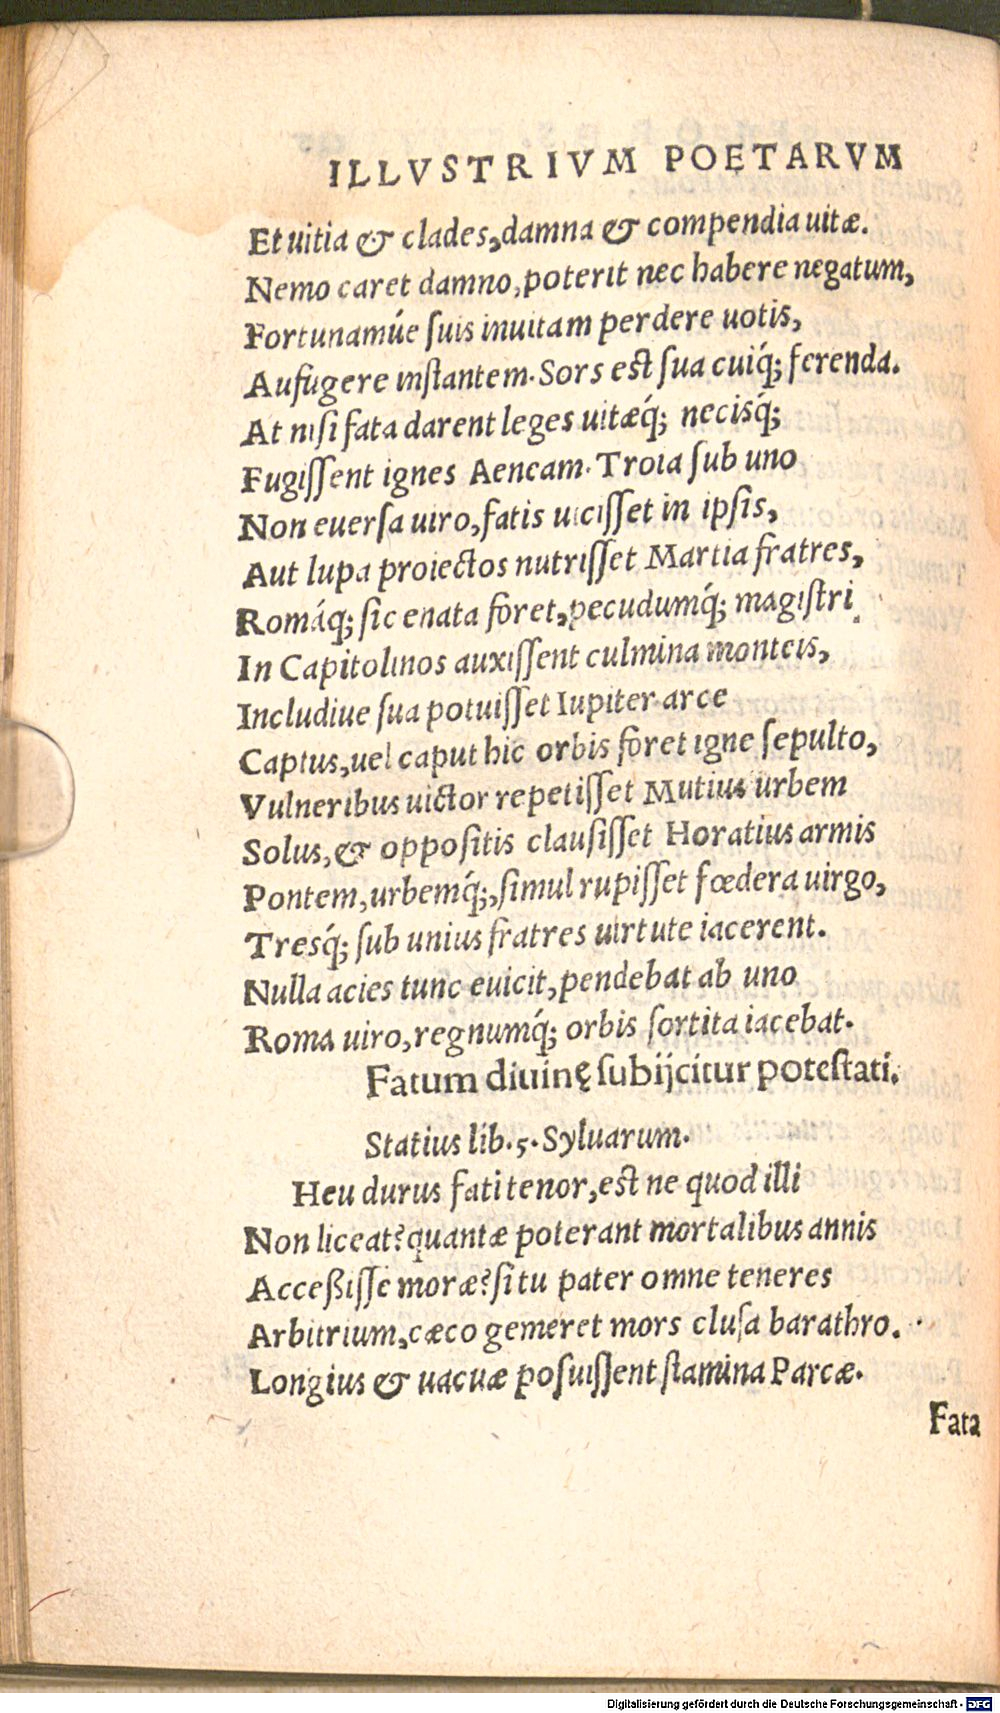 ILLVSTRIVM POETARVM
Et uitia & clades, damna & compendia uitæ.
Nemo caret damno, poterit nec habere negatum,
Fortunamúe suis inuitam perdere uotis,
Aufugere instantem. Sors est sua cuiq́; ferenda.
At nisi fata darent leges uitæq́; necisq́;
Fugissent ignes Aeneam. Troia sub uno
Non euersa uiro, fatis uicisset in ipsis,
Aut lupa proiectos nutrisset Martia fratres,
Románq; sic enata foret, pecudumq́; magistri
In Capitolinos auxissent culmina monteis,
Includiue sua potuisset Iupiter arce
Captus, uel caput hic orbis foret igne sepulto,
Vulneribus uictor repetisset Mutius urbem
Solus, & oppositis clausisset Horatius armis
Pontem, urbemq́;, simul rupisset fœdera uirgo,
Tresq́; sub unius fratres uirtute iacerent.
Nulla acies tunc euicit, pendebat ab uno
Roma uiro, regnumq́; orbis sortita iacebat.
Fatum diuinę subijcitur potestati.
Statius lib. 5. Syluarum.
Heu durus fati tenor, est ne quod illi
Non liceat? quantæ poterant mortalibus annis
Acceßisse moræ? si tu pater omne teneres
Arbitrium, cæco gemeret mors clusa barathro.
Longius & uacuæ posuissent stamina Parcæ.
Fata
Digitalisierung gefördert durch die Deutsche Forschungsgemeinschaft - DFG